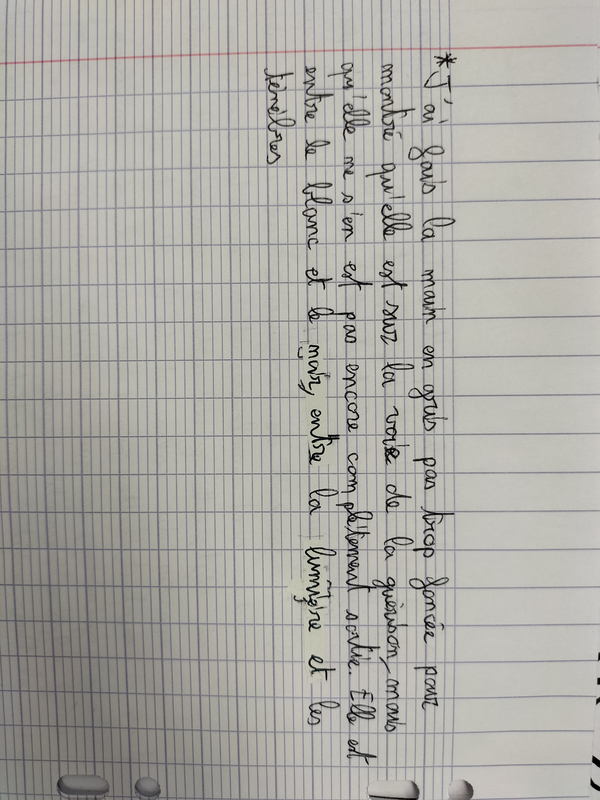 *J'ai fais la main en gris pas trop foncée pour
montré qu'elle est sur la voie de la guérison, mais
qu'elle ne s'en est pas encore complètement sortie. Elle est
entre le blanc et le noir, entre la lumière et les
ténèbres